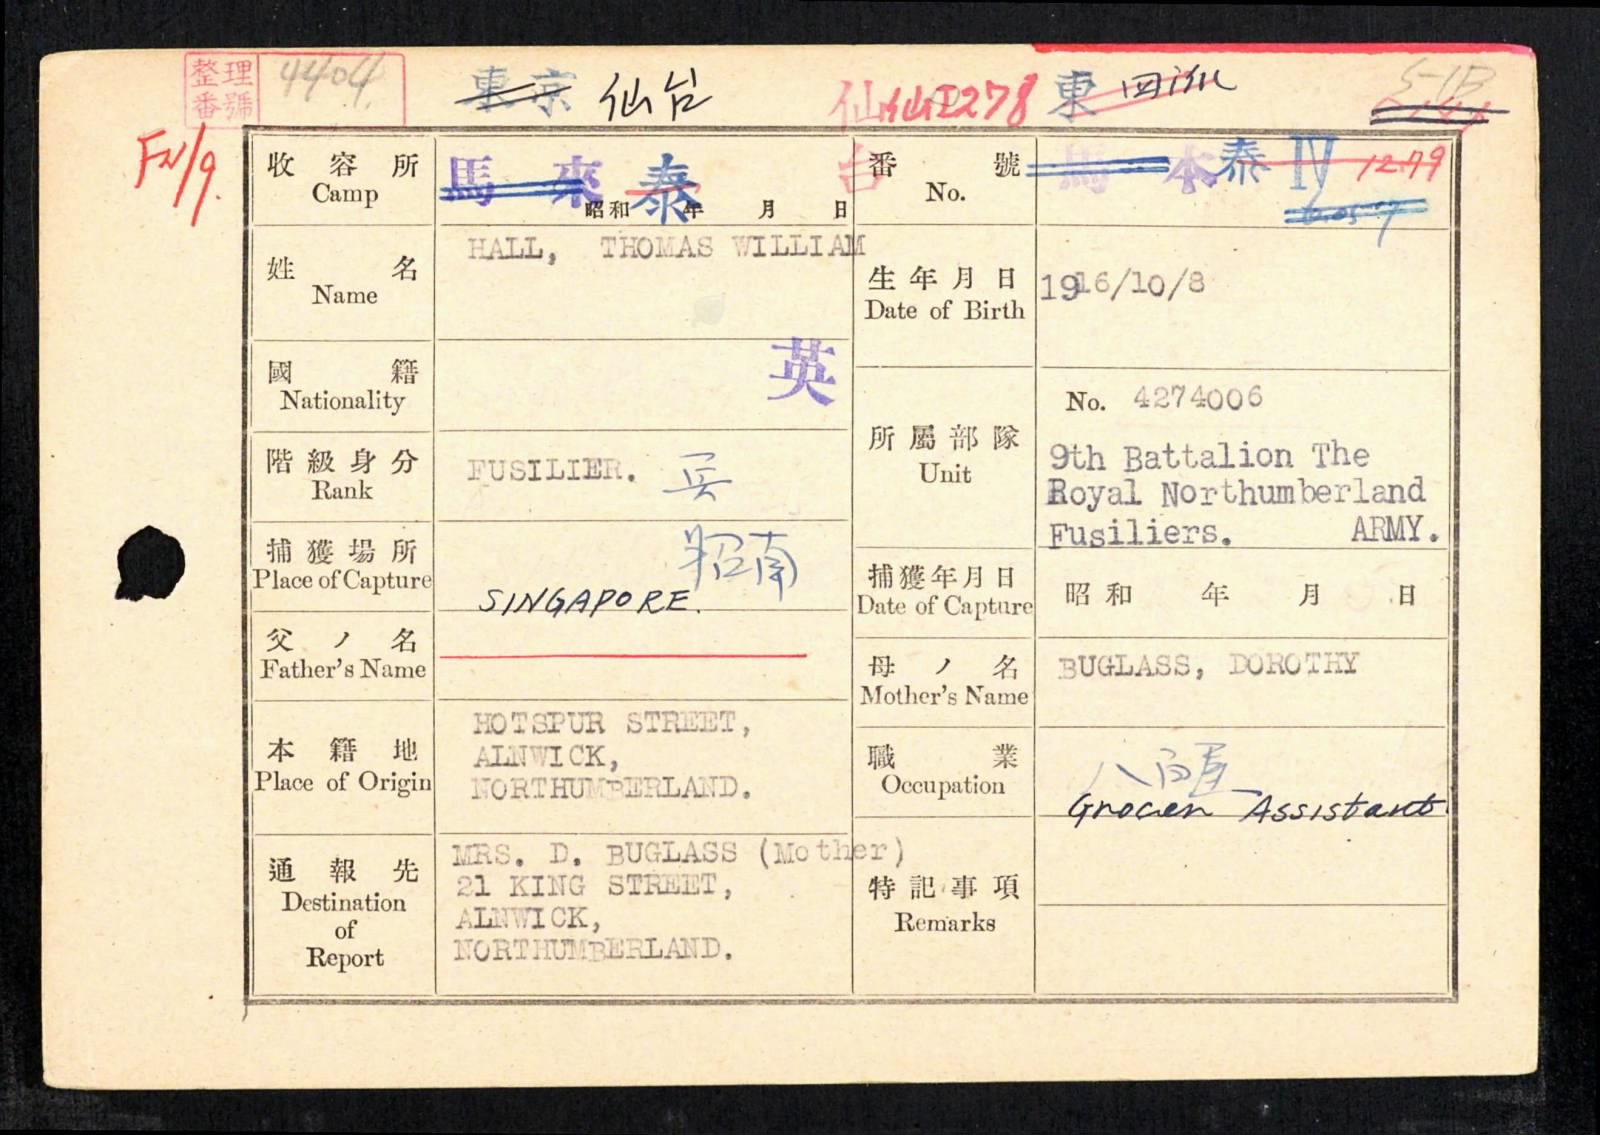 整理番號 4404.
東京 仙台 仙仙I278 東
FN/9.
收容所 Camp
馬來 泰 台
昭和 年 月 日
番號 No.
馬本泰 IV 1279
姓名 Name
HALL, THOMAS WILLIAM
生年月日 Date of Birth
1916/10/8
國籍 Nationality
英
階級身分 Rank
FUSILIER. 兵
所屬部隊 Unit
No. 4274006
9th Battalion The
Royal Northumberland
Fusiliers. ARMY.
捕獲場所 Place of Capture
昭南
SINGAPORE.
捕獲年月日 Date of Capture
昭和 年 月 日
父ノ名 Father's Name
母ノ名 Mother's Name
BUGLASS, DOROTHY
本籍地 Place of Origin
HOTSPUR STREET,
ALNWICK,
NORTHUMBERLAND.
職業 Occupation
八百屋
Grocer Assistant.
通報先 Destination of Report
MRS. D. BUGLASS (Mother)
21 KING STREET,
ALNWICK,
NORTHUMBERLAND.
特記事項 Remarks